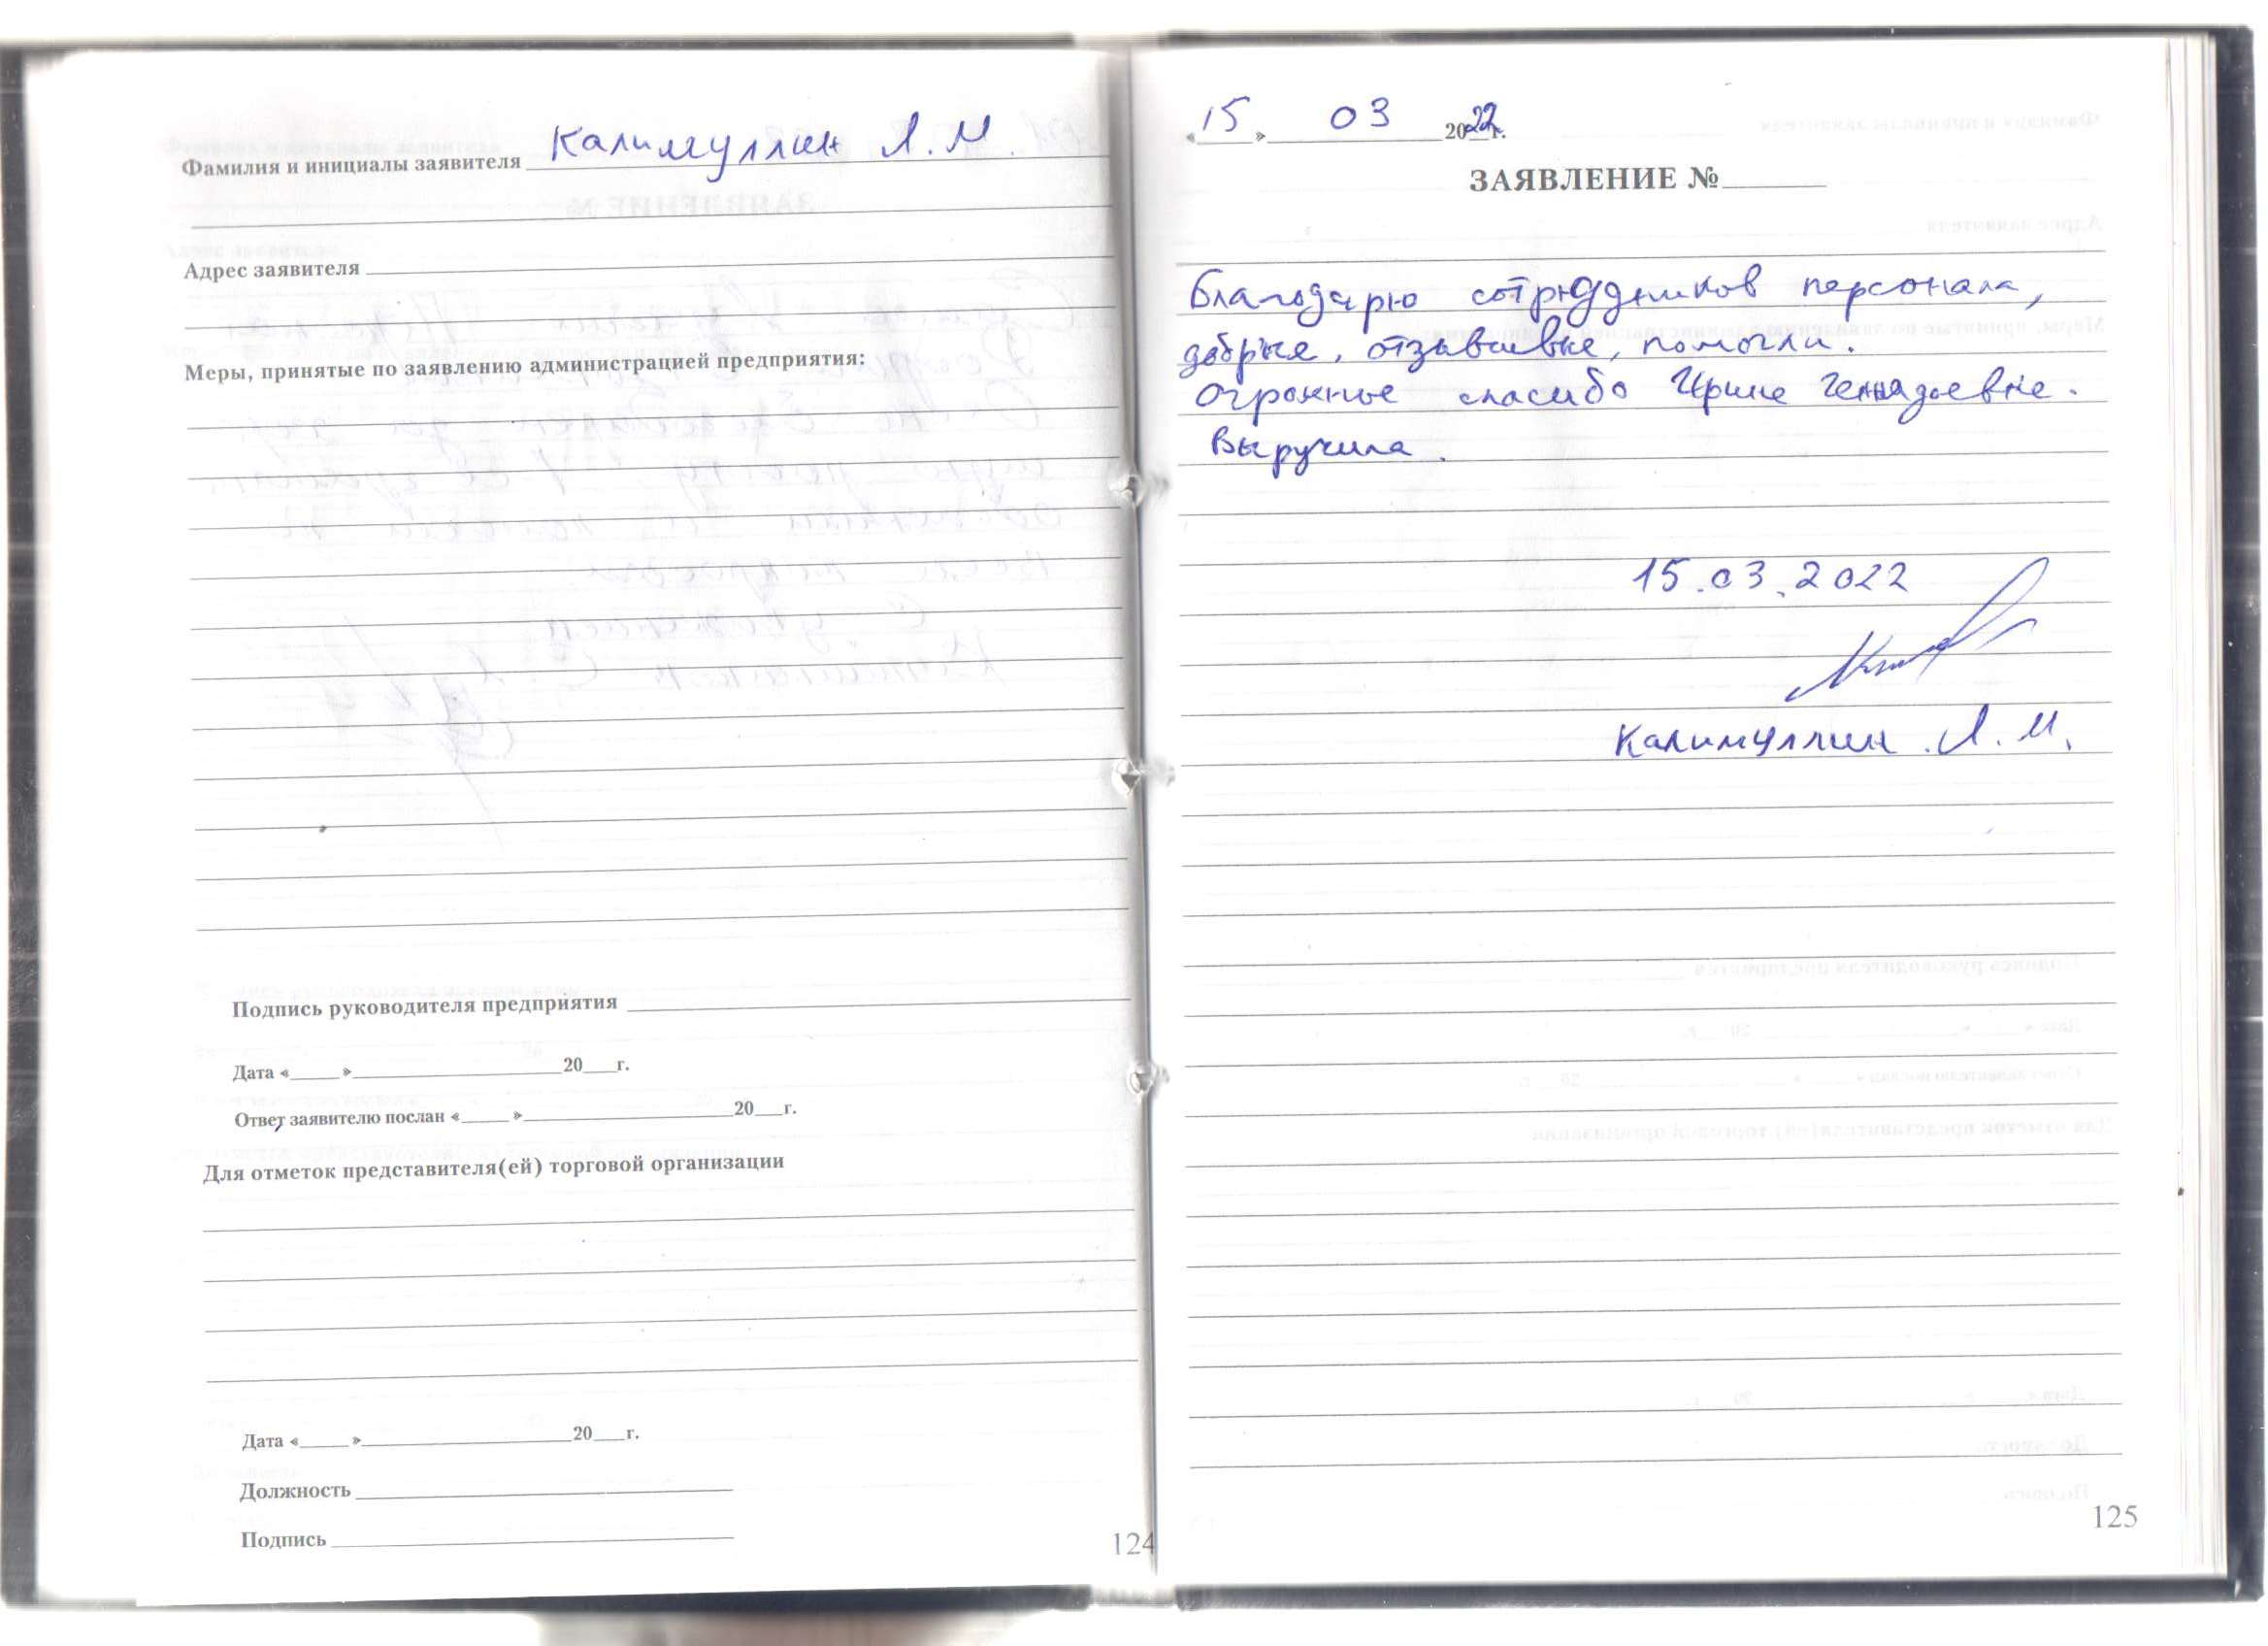 Фамилия и инициалы заявителя Калимуллин Л. М.
Адрес заявителя
Меры, принятые по заявлению администрацией предприятия:
Подпись руководителя предприятия
Дата «_____»_____________________20___г.
Ответ заявителю послан «_____»_____________________20___г.
Для отметок представителя(ей) торговой организации
Дата «_____»_____________________20___г.
Должность
Подпись
124
«15» 03 2022г.
ЗАЯВЛЕНИЕ №
Благодарю сотрудников персонала,
добрые, отзывчивые, помогли.
Огромное спасибо Ирине Геннадьевне.
Выручила.
15.03.2022
Калимуллин Л. М.
125